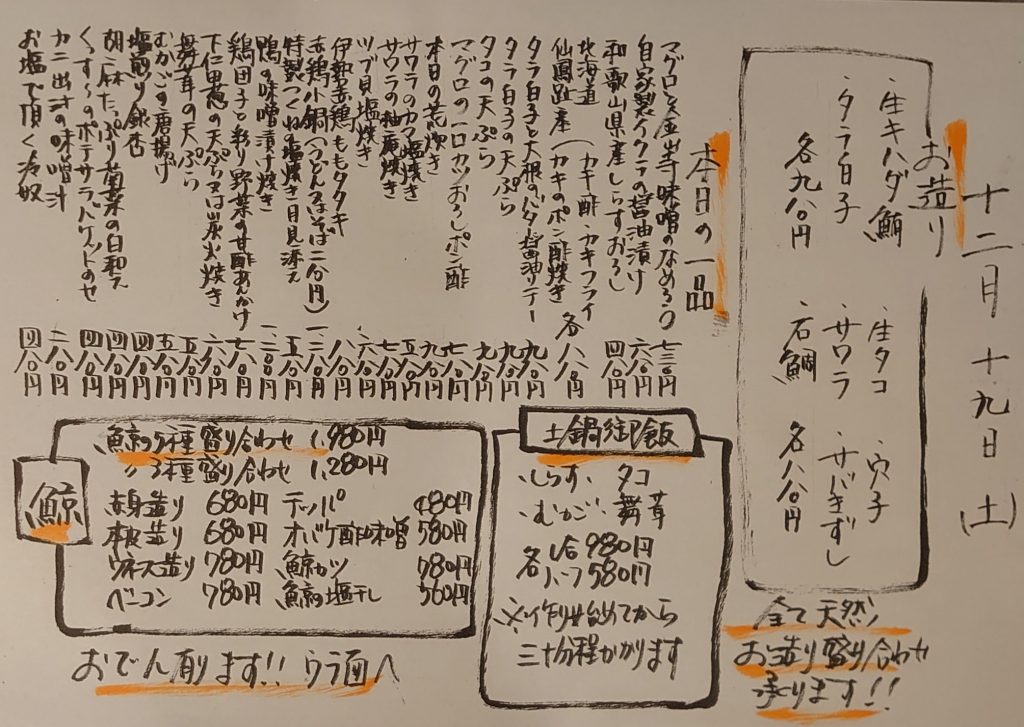 十二月十九日(土)
お造り
・生キハダ鮪
・タラ白子
各九八〇円
・生タコ ・穴子
・サワラ ・サバきずし
・石鯛 各八八〇円
全て天然
お造り盛り合わせ
承ります!!
本日の一品
マグロと金山寺味噌のなめろう 七三〇円
自家製イクラの醤油漬け 六八〇円
和歌山県産しらすおろし 四八〇円
北海道 (カキ酢・カキフライ
仙鳳趾産 (カキのポン酢焼き 各八八〇円
タラ白子と大根のバター醤油ソテー 九八〇円
タラ白子の天ぷら 九八〇円
タコの天ぷら 九八〇円
マグロの一口カツおろしポン酢 七八〇円
本日の荒炊き 九八〇円
サワラのカマ塩焼き 五八〇円
サワラの柚庵焼き 七八〇円
ツブ貝塩焼き 六八〇円
伊勢赤鶏ももタタキ 八八〇円
赤鶏小鍋(うどん又はそば二八〇円)
特製つくねの塩焼き 月見添え 五八〇円
鴨の味噌漬け焼き
鶏団子と彩り野菜の甘酢あんかけ 七八〇円
下仁田葱の天ぷら又は炭火焼き 六八〇円
舞茸の天ぷら 五八〇円
むかごの唐揚げ 五八〇円
塩煎り銀杏 四八〇円
胡麻たっぷり菊菜の白和え 四八〇円
くんすモのポテサラバケットのせ 四八〇円
カニ出汁の味噌汁 二八〇円
お塩で頂く冷奴 四八〇円
土鍋御飯
・しらす ・タコ
・むかご ・舞茸
各 1合 980円
ハーフ 580円
※作り始めてから
三十分程かかります
鯨
鯨の5種盛り合わせ 1,980円
〃 3種盛り合わせ 1,280円
赤身造り 680円 テッパ 480円
本皮造り 680円 オバケ酢味噌 580円
ウネス造り 780円 鯨カツ 780円
ベーコン 780円 鯨の塩干し 560円
おでん有ります!! ウラ面へ